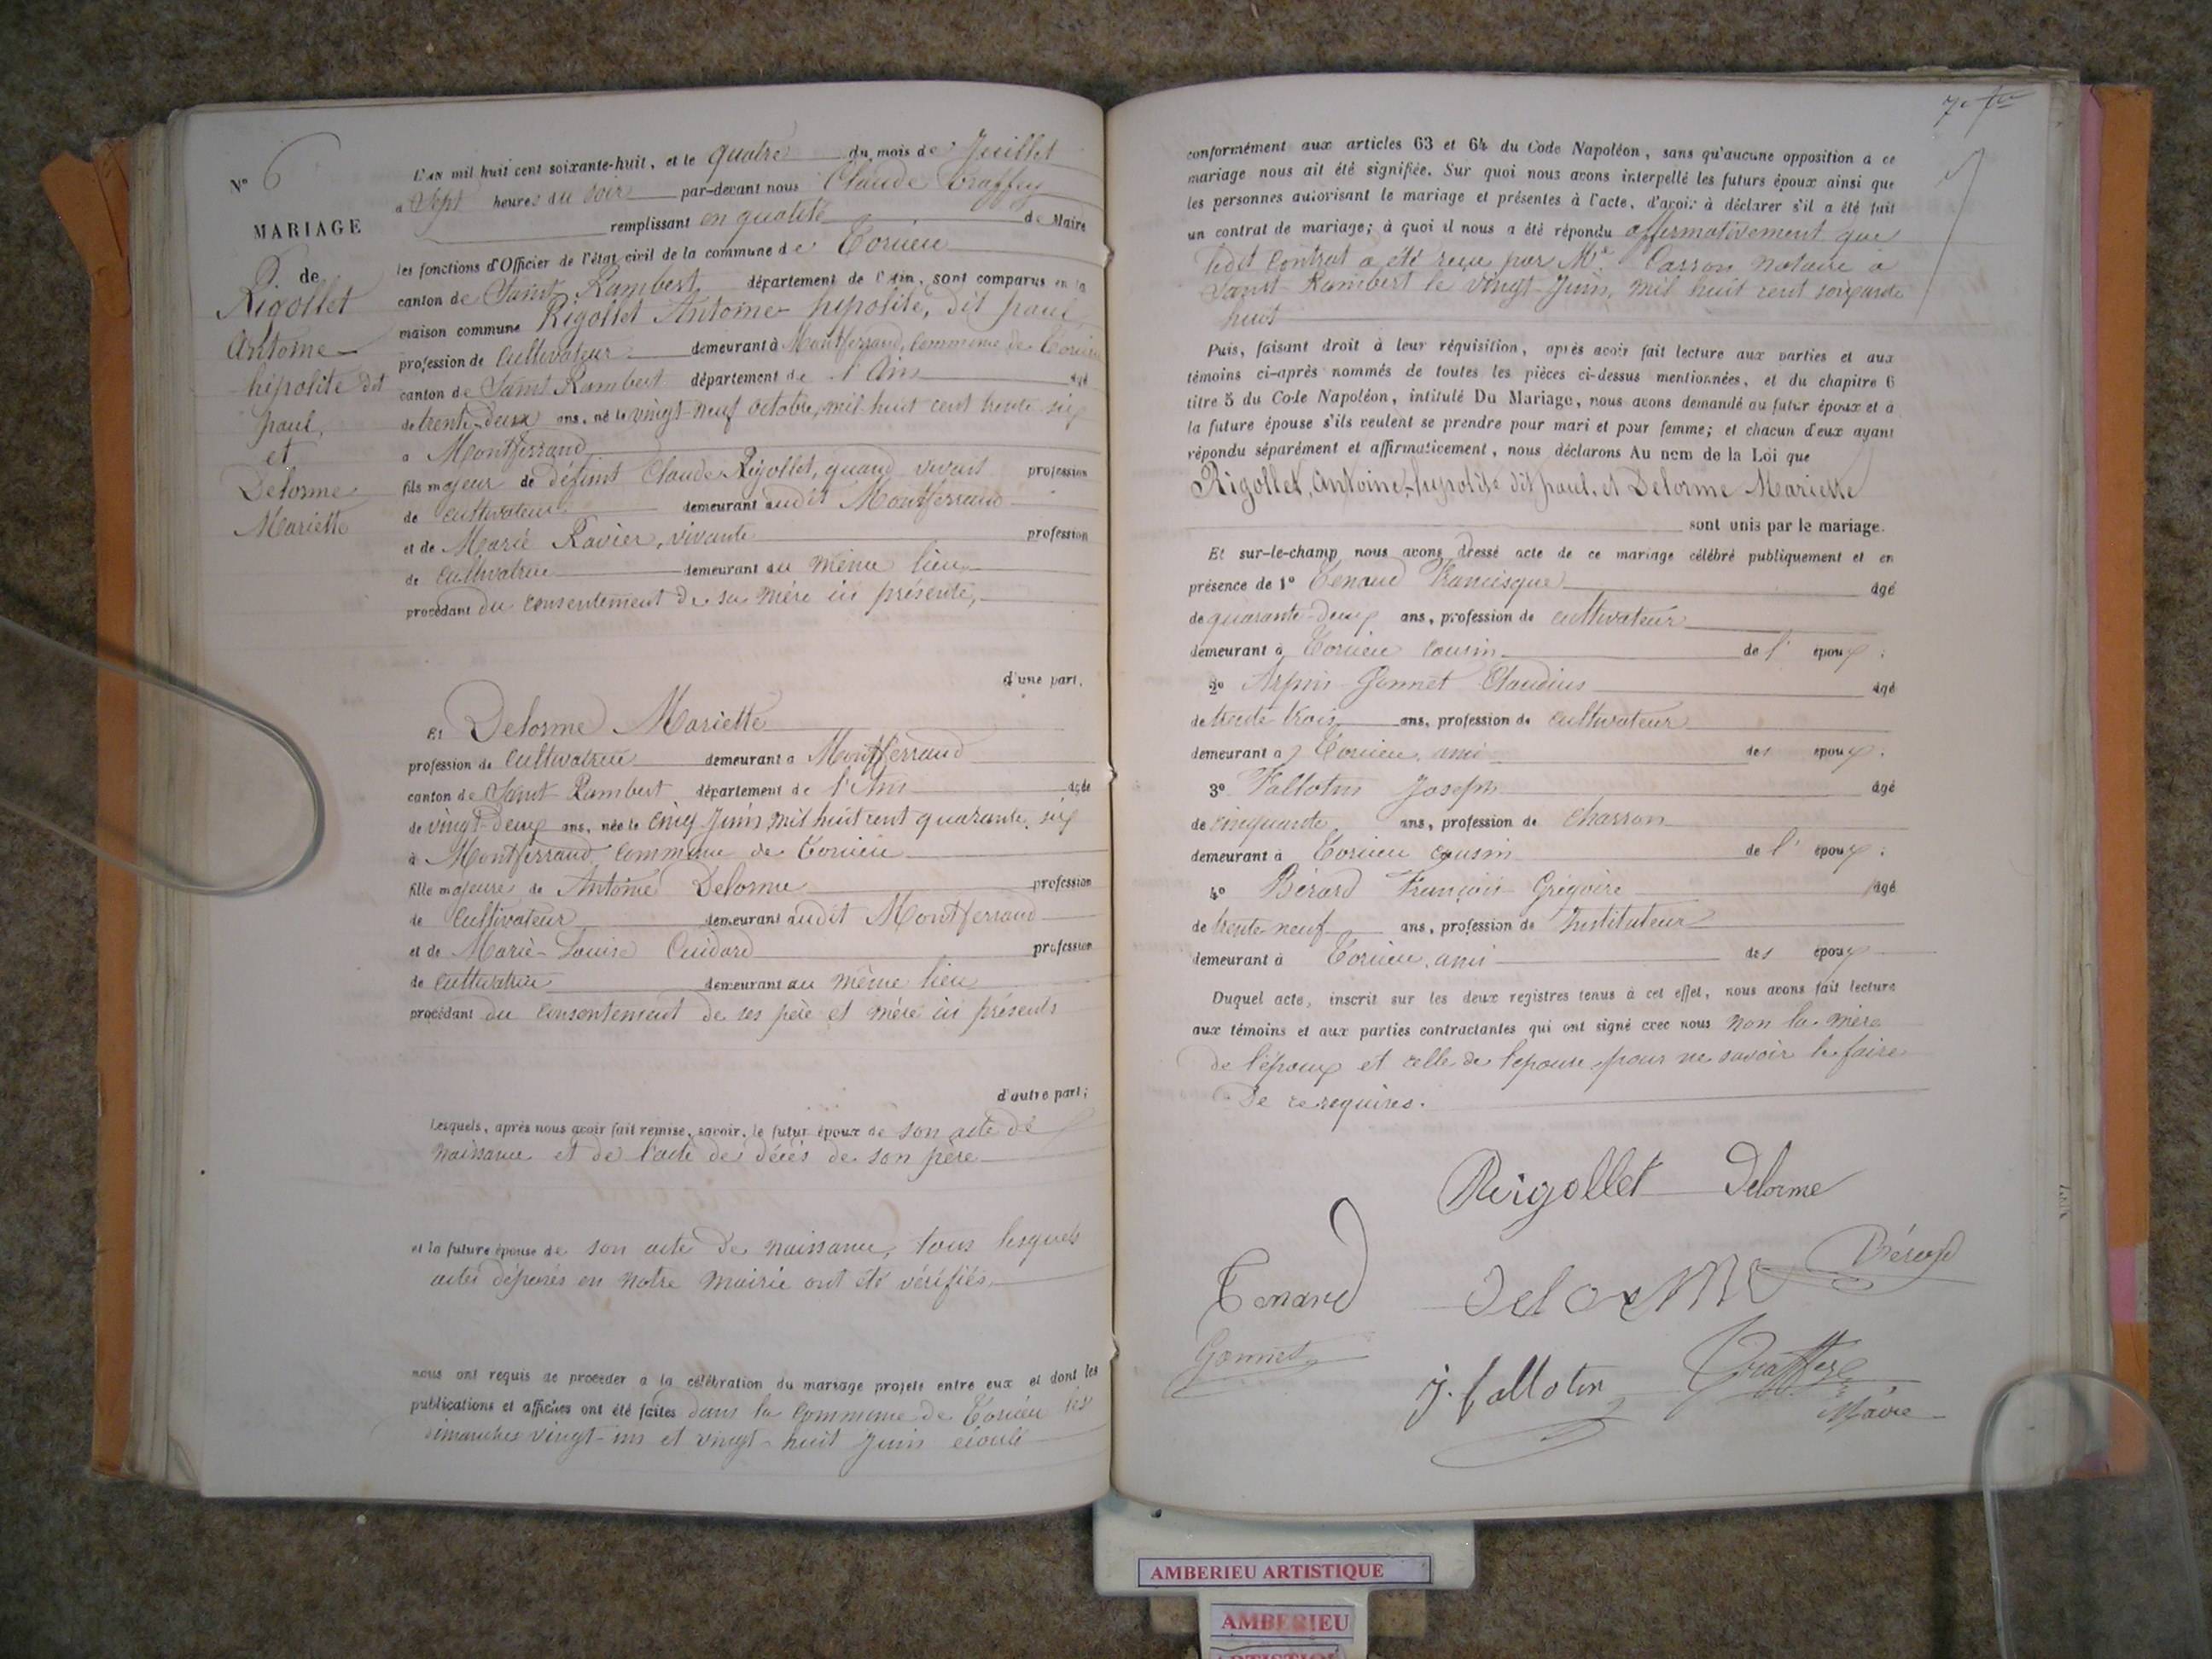 N° 6
MARIAGE
de
Rigollet
Antoine
hipolite dit
paul,
et
Delorme
Mariette
L'AN mil huit cent soixante-huit, et le quatre du mois de Juillet
a Sept heures du soir par-devant nous Claude
remplissant en qualité de Maire
les fonctions d'Officier de l'état civil de la commune de Torcieu
canton de Saint Rambert département de l'Ain, sont comparus en la
maison commune Rigollet Antoine hipolite, dit paul
profession de Cultivateur demeurant à Montferrand, Commune de Torcieu
canton de Saint Rambert département de l'Ain âgé
de trente-deux ans, né le vingt-neuf octobre, mil huit cent trente six
à Montferrand
fils majeur de défunt Claude Rigollet, quand vivait profession
de cultivateur demeurant audit Montferrand
et de Marie Ravier, vivante profession
de cultivatrice demeurant au même lieu
procédant du consentement de sa mère ici présente,
d'une part.
Et Delorme Mariette
profession de Cultivatrice demeurant à Montferrand
canton de Saint Rambert département de l'Ain âgée
de vingt-deux ans, née le cinq Juin, mil huit cent quarante six
à Montferrand Commune de Torcieu
fille majeure de Antoine Delorme profession
de Cultivateur demeurant audit Montferrand
et de Marie-Louise Cuidard profession
de cultivatrice demeurant au même lieu
procédant du consentement de ses père et mère ici présents
d'autre part;
Lesquels, après nous avoir fait remise, savoir, le futur époux de son acte de
naissance et de l'acte de décès de son père
et la future épouse de son acte de naissance, tous lesquels
actes déposés en notre mairie ont été vérifiés.
nous ont requis de procéder à la célébration du mariage projeté entre eux et dont les
publications et affiches ont été faites dans la Commune de Torcieu les
dimanches vingt-un et vingt-huit Juin écoulé
conformément aux articles 63 et 64 du Code Napoléon, sans qu'aucune opposition à ce
mariage nous ait été signifiée. Sur quoi nous avons interpellé les futurs époux ainsi que
les personnes autorisant le mariage et présentes à l'acte, d'avoir à déclarer s'il a été fait
un contrat de mariage; à quoi il nous a été répondu affirmativement que
ledit Contrat a été reçu par Me Carron notaire à
Saint Rambert le vingt Juin, mil huit cent soixante
huit
Puis, faisant droit à leur réquisition, après avoir fait lecture aux parties et aux
témoins ci-après nommés de toutes les pièces ci-dessus mentionnées, et du chapitre 6
titre 5 du Code Napoléon, intitulé Du Mariage, nous avons demandé au futur époux et à
la future épouse s'ils veulent se prendre pour mari et pour femme; et chacun d'eux ayant
répondu séparément et affirmativement, nous déclarons Au nom de la Loi que
Rigollet, Antoine-hypolite dit paul, et Delorme Mariette
sont unis par le mariage.
Et sur-le-champ nous avons dressé acte de ce mariage célébré publiquement et en
présence de 1° Tenand Francisque âgé
de quarante-deux ans, profession de cultivateur
demeurant à Torcieu cousin de l'époux;
2° Arpin-Gonnet Claudius âgé
de trente trois ans, profession de cultivateur
demeurant à Torcieu, ami des époux.
3° Fallotin Joseph âgé
de cinquante ans, profession de charron
demeurant à Torcieu cousin de l'époux;
4° Bérard François Grégoire âgé
de trente-neuf ans, profession de Instituteur
demeurant à Torcieu, ami des époux
Duquel acte, inscrit sur les deux registres tenus à cet effet, nous avons fait lecture
aux témoins et aux parties contractantes qui ont signé avec nous non la mère
de l'époux et celle de l'épouse pour ne savoir le faire
de ce requises.
Rigollet Delorme
Tenand delorme Bérard
Gonnet
J. fallotin
Maire
AMBERIEU ARTISTIQUE
AMBERIEU
ARTISTIQUE